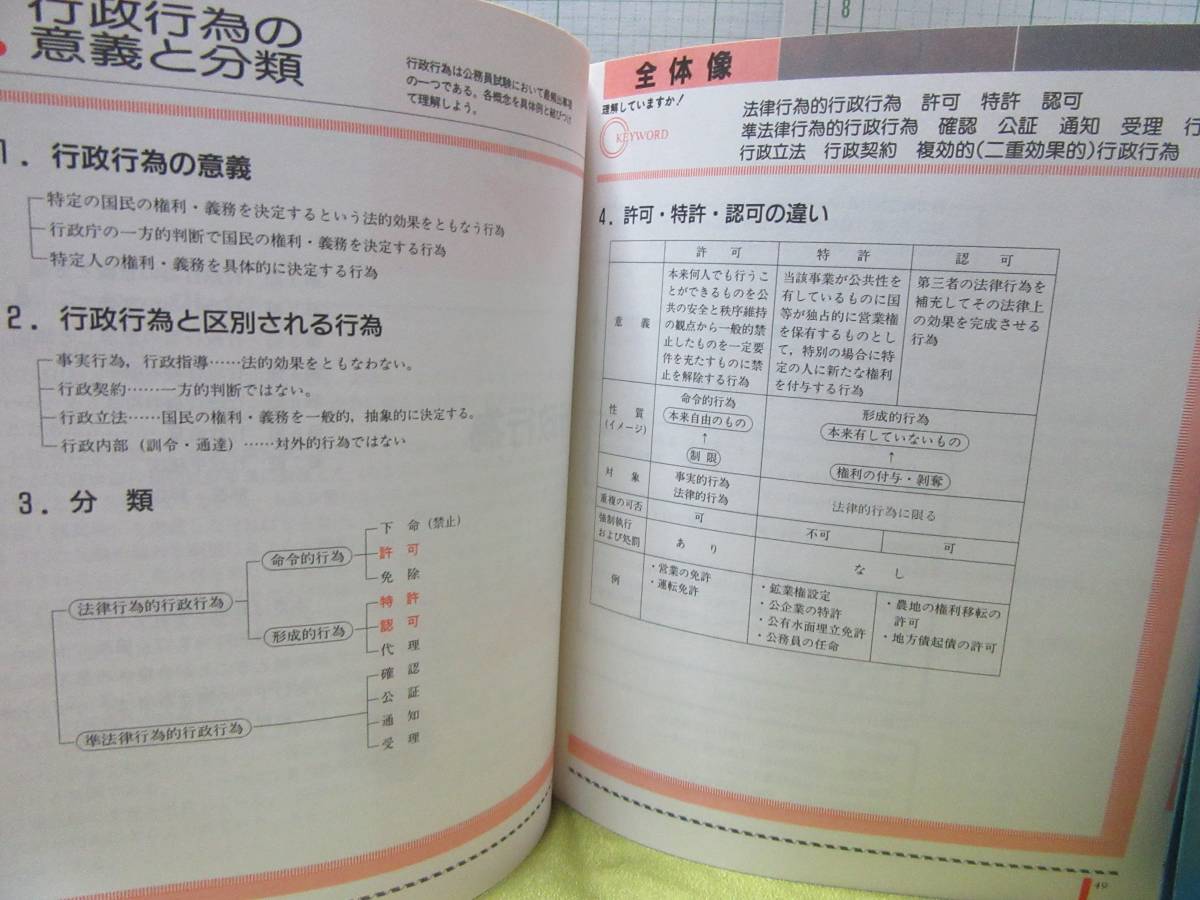 行政行為の
意義と分類
行政行為は公務員試験において最頻出事項
の一つである。各概念を具体例と結びつけ
て理解しよう。
1．行政行為の意義
特定の国民の権利・義務を決定するという法的効果をともなう行為
行政庁の一方的判断で国民の権利・義務を決定する行為
特定人の権利・義務を具体的に決定する行為
2．行政行為と区別される行為
事実行為，行政指導……法的効果をともなわない。
行政契約……一方的判断ではない。
行政立法……国民の権利・義務を一般的，抽象的に決定する。
行政内部（訓令・通達）……対外的行為ではない
3．分　類
法律行為的行政行為
命令的行為
下　命（禁止）
許　可
免　除
形成的行為
特　許
認　可
代　理
準法律行為的行政行為
確　認
公　証
通　知
受　理
8
全体像
理解していますか！
KEYWORD
法律行為的行政行為　許可　特許　認可
準法律行為的行政行為　確認　公証　通知　受理　行
行政立法　行政契約　複効的（二重効果的）行政行為
4．許可・特許・認可の違い
許　可　特　許　認　可
意　義
本来何人でも行うこ
とができるものを公
共の安全と秩序維持
の観点から一般的禁
止したものを一定要
件を充たすものに禁
止を解除する行為
当該事業が公共性を
有しているものに国
等が独占的に営業権
を保有するものとし
て，特別の場合に特
定の人に新たな権利
を付与する行為
第三者の法律行為を
補充してその法律上
の効果を完成させる
行為
性　質
（イメージ）
命令的行為
本来自由のもの
↑
制限
形成的行為
本来有していないもの
↑
権利の付与・剥奪
対　象
事実的行為
法律的行為
法律的行為に限る
重複の可否
可
不可
可
強制執行
および処罰
あ　り
な　し
例
・営業の免許
・運転免許
・鉱業権設定
・公企業の特許
・公有水面埋立免許
・公務員の任命
・農地の権利移転の
許可
・地方債起債の許可
49